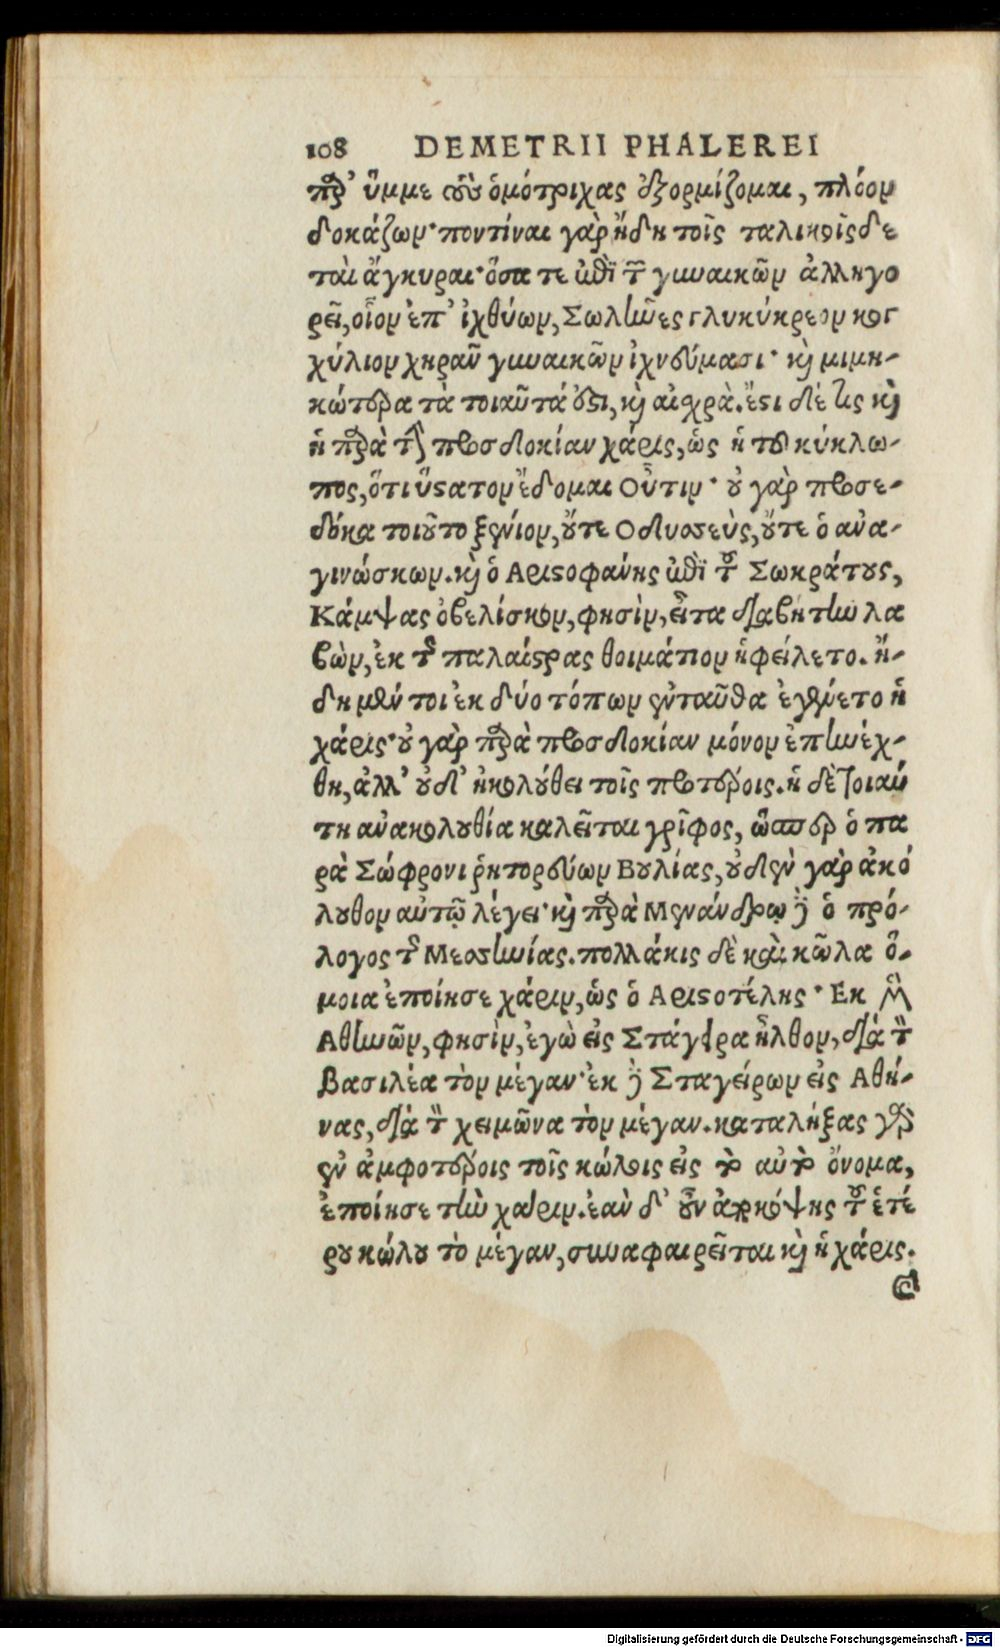 108 DEMETRII PHALEREI
παρ' ὔμμε τοὺς ὁμότριχας ἐξορμίζομαι, πλόον
δοκάζων· ποντίναι γὰρ ἤδη τοῖς ταλικοῖς δε
ταὶ ἄγκυραι· ὅσα τε ἐπὶ τῶν γυναικῶν ἀλληγο
ρεῖ, οἷον ἐπ' ἰχθύων, Σωλῆνες γλυκύκρεον κογ
χύλιον χηρᾶν γυναικῶν ἰχνεύμασι· καὶ μιμη-
κώτερα τὰ τοιαῦτά ἐστι, καὶ αἰσχρά. ἔστι δέ τις καὶ
ἡ παρὰ τὴν προσδοκίαν χάρις, ὡς ἡ τοῦ κύκλω-
πος, ὅτι ὕστατον ἔδομαι Οὖτιν· οὐ γὰρ προσε-
δόκα τοιοῦτο ξένιον, οὔτε Οδυσσεὺς, οὔτε ὁ ἀνα-
γινώσκων. καὶ ὁ Αριστοφάνης ἐπὶ τοῦ Σωκράτους,
Κάμψας ὀβελίσκον, φησὶν, εἶτα διαβήτην λα
βὼν, ἐκ τῆς παλαίστρας θοιμάτιον ἡφείλετο. ἤ-
δη μέν τοι ἐκ δύο τόπων ἐνταῦθα ἐγένετο ἡ
χάρις· οὐ γὰρ παρὰ προσδοκίαν μόνον ἐπηνέχ-
θη, ἀλλ' οὐδ' ἠκολούθει τοῖς προτέροις. ἡ δὲ τοιαύ
τη ἀνακολουθία καλεῖται γρῖφος, ὥσπερ ὁ πα
ρὰ Σώφρονι ῥητορεύων Βουλίας, οὐδὲν γὰρ ἀκό
λουθον αὐτῷ λέγει· καὶ παρὰ Μενάνδρῳ δὲ ὁ πρό-
λογος τῆς Μεσσηνίας. πολλάκις δὲ καὶ κῶλα ὅ-
μοια ἐποίησε χάριν, ὡς ὁ Αριστοτέλης· Εκ μὲν
Αθηνῶν, φησὶν, ἐγὼ εἰς Στάγειρα ἦλθον, διὰ τὸν
βασιλέα τὸν μέγαν· ἐκ δὲ Σταγείρων εἰς Αθή-
νας, διὰ τὸν χειμῶνα τὸν μέγαν. καταλήξας γὰρ
ἐν ἀμφοτέροις τοῖς κώλοις εἰς τὸ αὐτὸ ὄνομα,
ἐποίησε τὴν χάριν. ἐὰν δ' οὖν ἀποκόψῃς τοῦ ἑτέ
ρου κώλου τὸ μέγαν, συναφαιρεῖται καὶ ἡ χάρις.
Digitalisierung gefördert durch die Deutsche Forschungsgemeinschaft - DFG